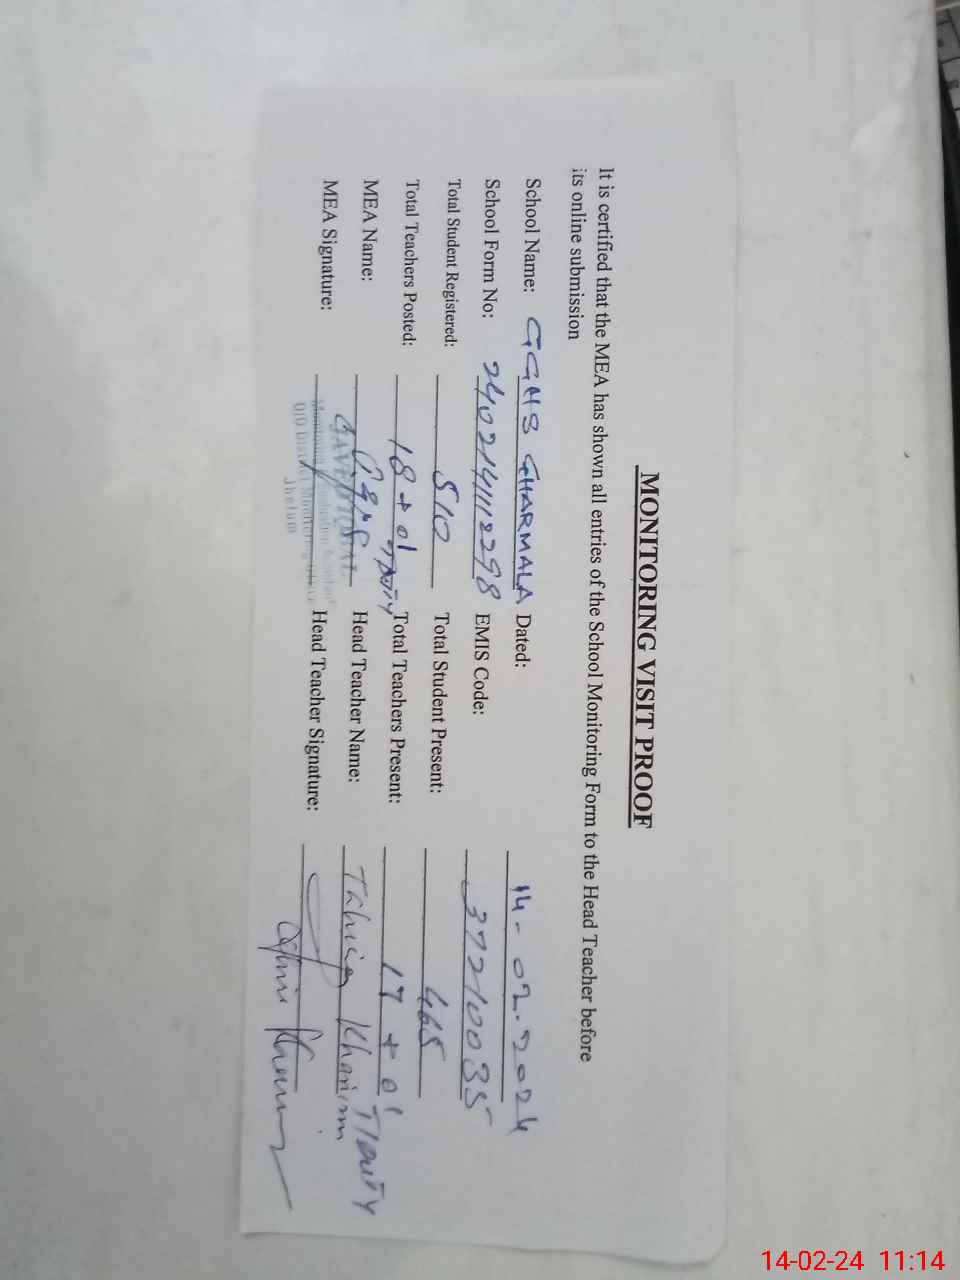 MONITORING VISIT PROOF
It is certified that the MEA has shown all entries of the School Monitoring Form to the Head Teacher before
its online submission
School Name: GGHS GHARMALA Dated: 14-02-2024
School Form No: 2402141112298 EMIS Code: 37210035
Total Student Registered: 510 Total Student Present: 465
Total Teachers Posted: 18 + 01 T/Duty Total Teachers Present: 17 + 01 T/Duty
MEA Name: Head Teacher Name: Khanum
MEA Signature: Head Teacher Signature:
Jhelum
14-02-24 11:14